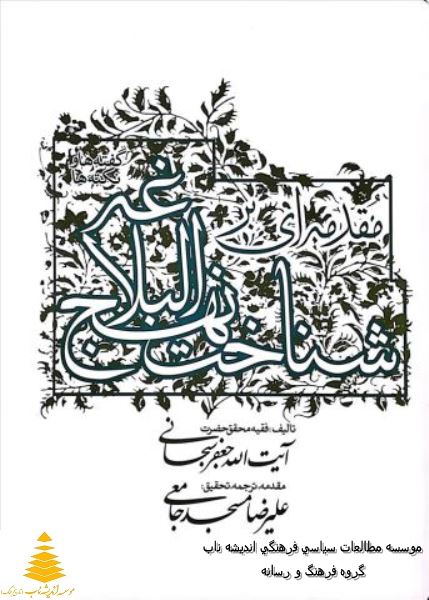 گفته‌ها و
نکته‌ها
مقدمه‌ای بر
شناخت نهج البلاغه
تالیف: فقیه محقق حضرت
آیت الله جعفر سبحانی
مقدمه، ترجمه، تحقیق:
علیرضا مسجدجامعی
موسسه مطالعات سیاسي فرهنگي اندیشه ناب
گروه فرهنگ و رسانه